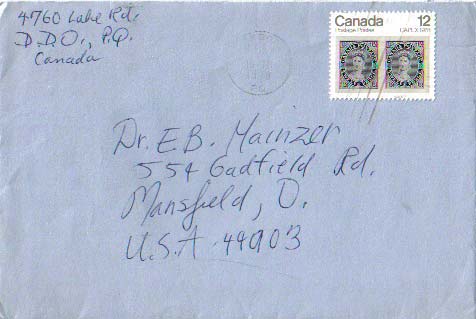 4760 Lake Rd.
D.D.O., P.Q.
Canada
Canada 12
Postage Postes CAPEX 1978
Dr. E.B. Mainzer
554 Gadfield Rd.
Mansfield, O.
U.S.A 44903